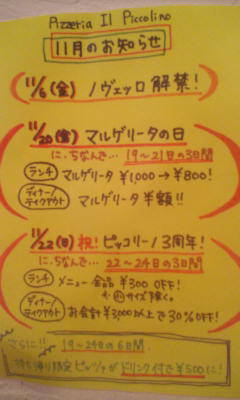 Azzeria Il Piccolino
11月のお知らせ
11/6(金) ノヴェッロ 解禁!
11/20(金) マルゲリータの日
に、ちなんで… 19〜21日の3日間
ランチ マルゲリータ ¥1,000→¥800!
ディナー/テイクアウト マルゲリータ 半額!!
11/22(日) 祝! ピッコリーノ3周年!
に、ちなんで… 22〜24日の3日間
ランチ メニュー全品 ¥300 OFF!
サイズ除く。
ディナー/テイクアウト お会計¥3,000以上で30%OFF!
さらに!! 19〜24日の6日間
持ち帰り限定 ピッツァがドリンク付で¥500に!